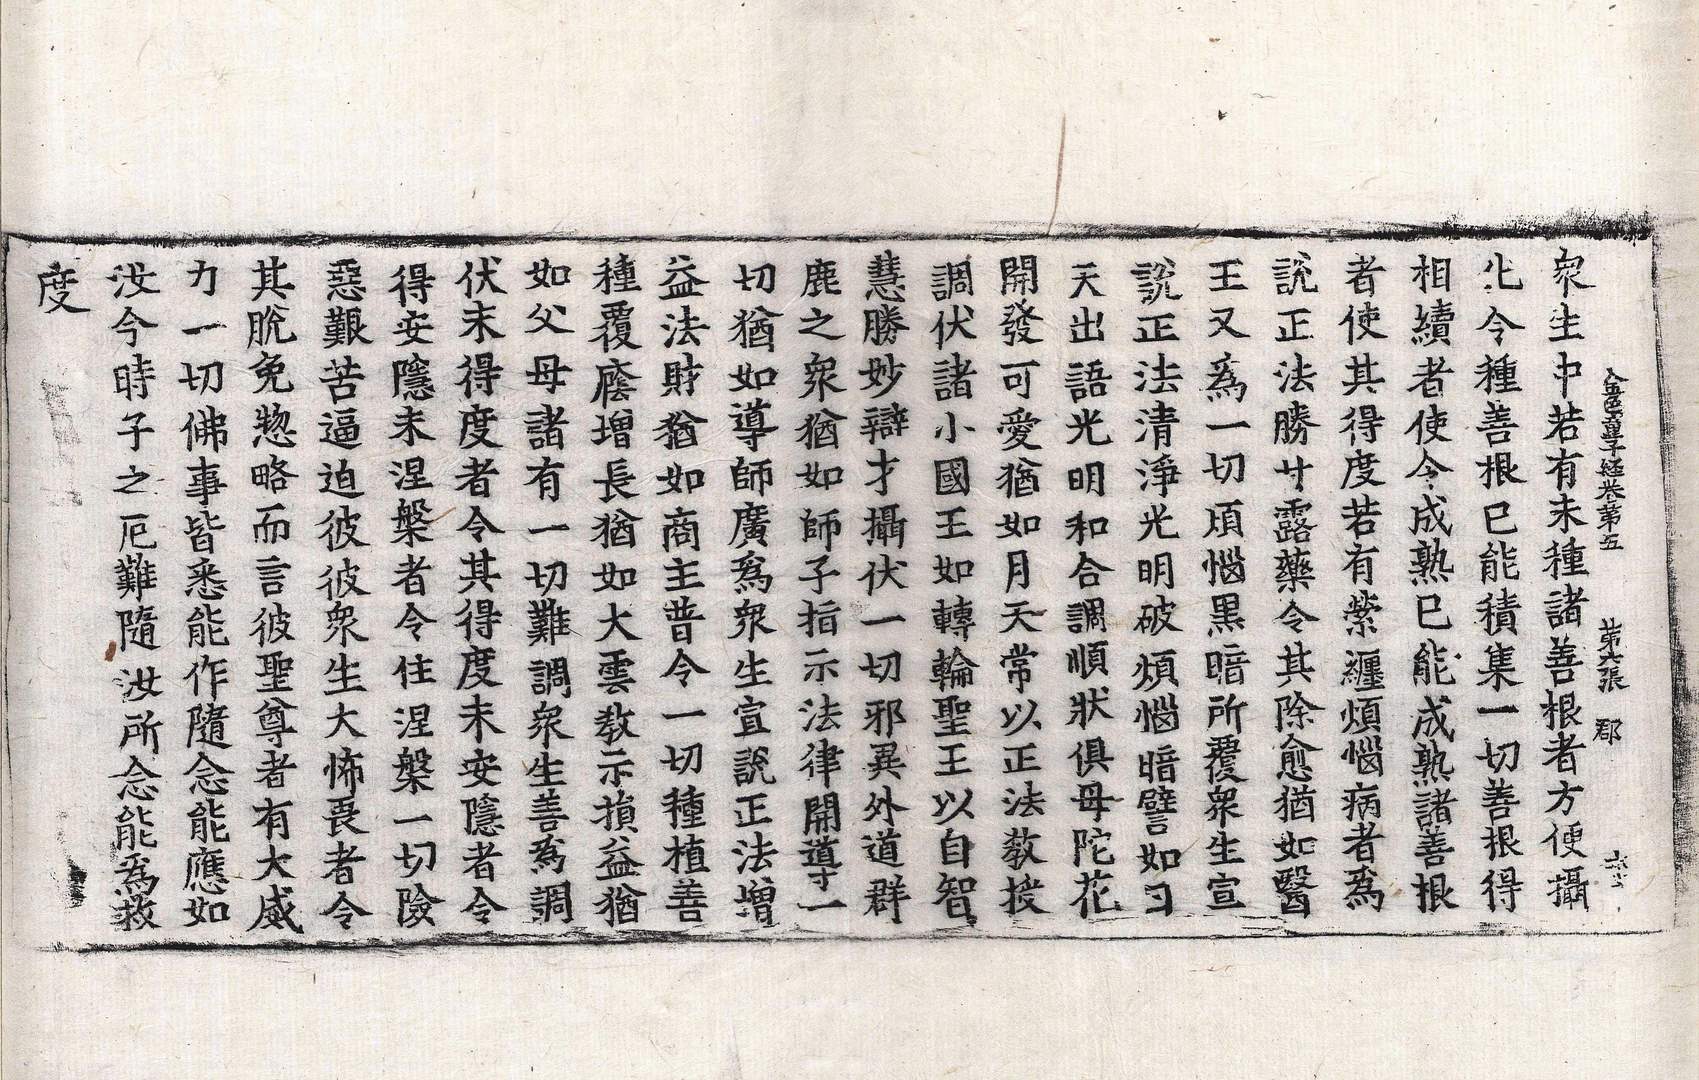 衆生中若有未種諸善根者方便攝
金色童子經卷第五　第六張　郡
化令種善根已能積集一切善根得
相續者使令成熟已能成熟諸善根
者使其得度若有縈纏煩惱病者爲
說正法勝甘露藥令其除愈猶如醫
王又爲一切煩惱黑暗所覆衆生宣
說正法清淨光明破煩惱暗譬如日
天出語光明和合調順狀俱母陀花
開發可愛猶如月天常以正法教授
調伏諸小國王如轉輪聖王以自智
慧勝妙辯才攝伏一切邪異外道群
鹿之衆猶如師子指示法律開導一
切猶如導師廣爲衆生宣說正法增
益法財猶如商主普令一切種植善
種覆廕增長猶如大雲教示損益猶
如父母諸有一切難調衆生善爲調
伏未得度者令其得度未安隱者令
得安隱未涅槃者令住涅槃一切險
惡艱苦逼迫彼彼衆生大怖畏者令
其脫免惣略而言彼聖尊者有大威
力一切佛事皆悉能作隨念能應如
汝今時子之厄難隨汝所念能爲救
度